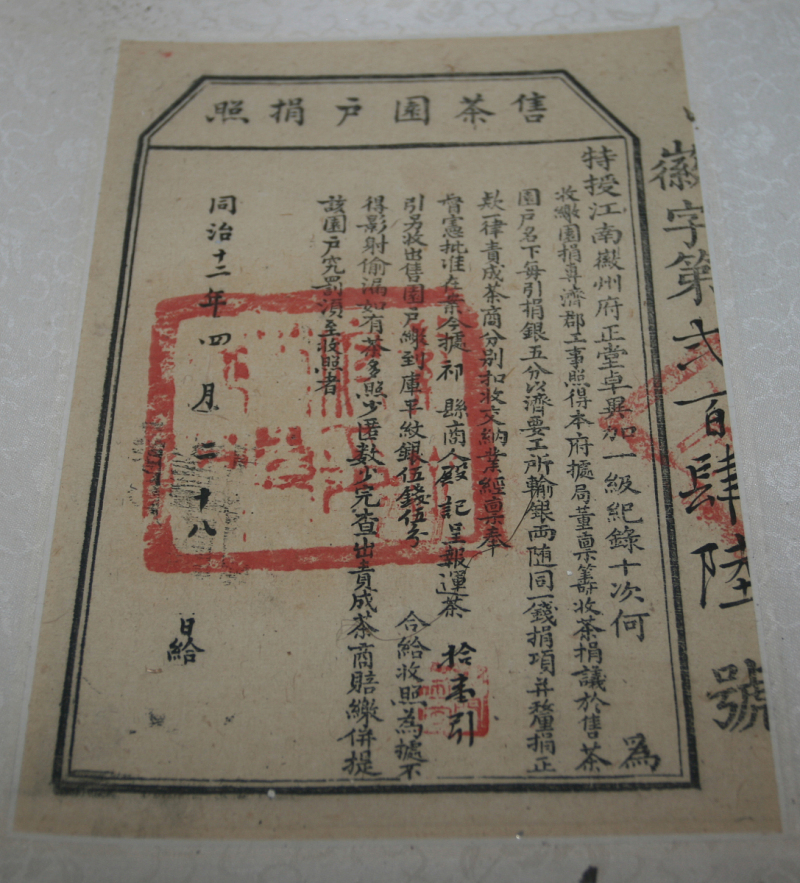 售茶園戶捐照
徽字第弍百肆陸號
特授江南徽州府正堂卓異加一級紀錄十次何 為
收繳園捐專濟郡工事照得本府據局董稟籌收茶捐議於售茶
園戶名下每引捐銀五分以濟要工所輸銀兩随同一錢捐項并釐捐正
欵一律責成茶商分別扣收交納業經稟奉
督憲批准在案今據祁縣商人殿記呈報運茶 拾壹引
引另收出售園戶繳到庫平紋銀伍錢伍分 合給收照為據不
得影射偷漏如有茶多照少匿數少完查出責成茶商賠繳併提
該園戶究罰湏至收照者
同治十二年四月二十八 日給